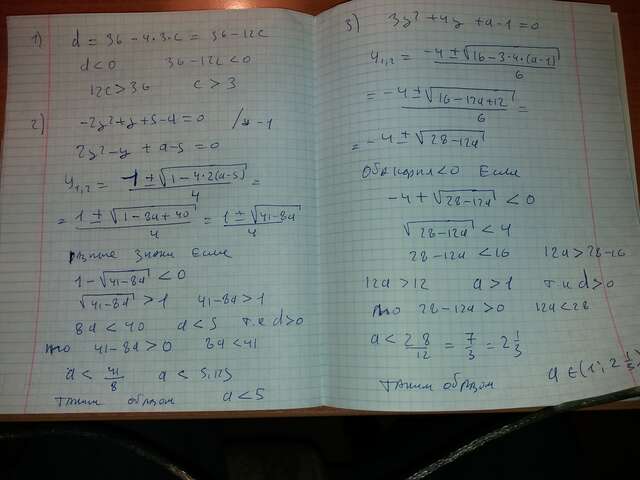 1) d = 36 - 4·3·c = 36 - 12c
d < 0 36 - 12c < 0
12c > 36 c > 3
2) -2y² + y + 5 - a = 0 /× -1
2y² - y + a - 5 = 0
y₁,₂ = (1 ± √(1 - 4·2(a-5)))/4 =
= (1 ± √(1 - 8a + 40))/4 = (1 ± √(41 - 8a))/4
разные знаки если
1 - √(41 - 8a) < 0
√(41 - 8a) > 1 41 - 8a > 1
8a < 40 a < 5 т.к d > 0
то 41 - 8a > 0 8a < 41
a < 41/8 a < 5,125
таким образом a < 5
3) 3y² + 4y + a - 1 = 0
y₁,₂ = (-4 ± √(16 - 3·4·(a-1)))/6
= (-4 ± √(16 - 12a + 12))/6 =
= -4 ± √(28 - 12a)
Оба корня < 0 если
-4 + √(28 - 12a) < 0
√(28 - 12a) < 4
28 - 12a < 16 12a > 28 - 16
12a > 12 a > 1 т.к d > 0
то 28 - 12a > 0 12a < 28
a < 28/12 = 7/3 = 2 1/3
таким образом a ∈ (1; 2 1/3)